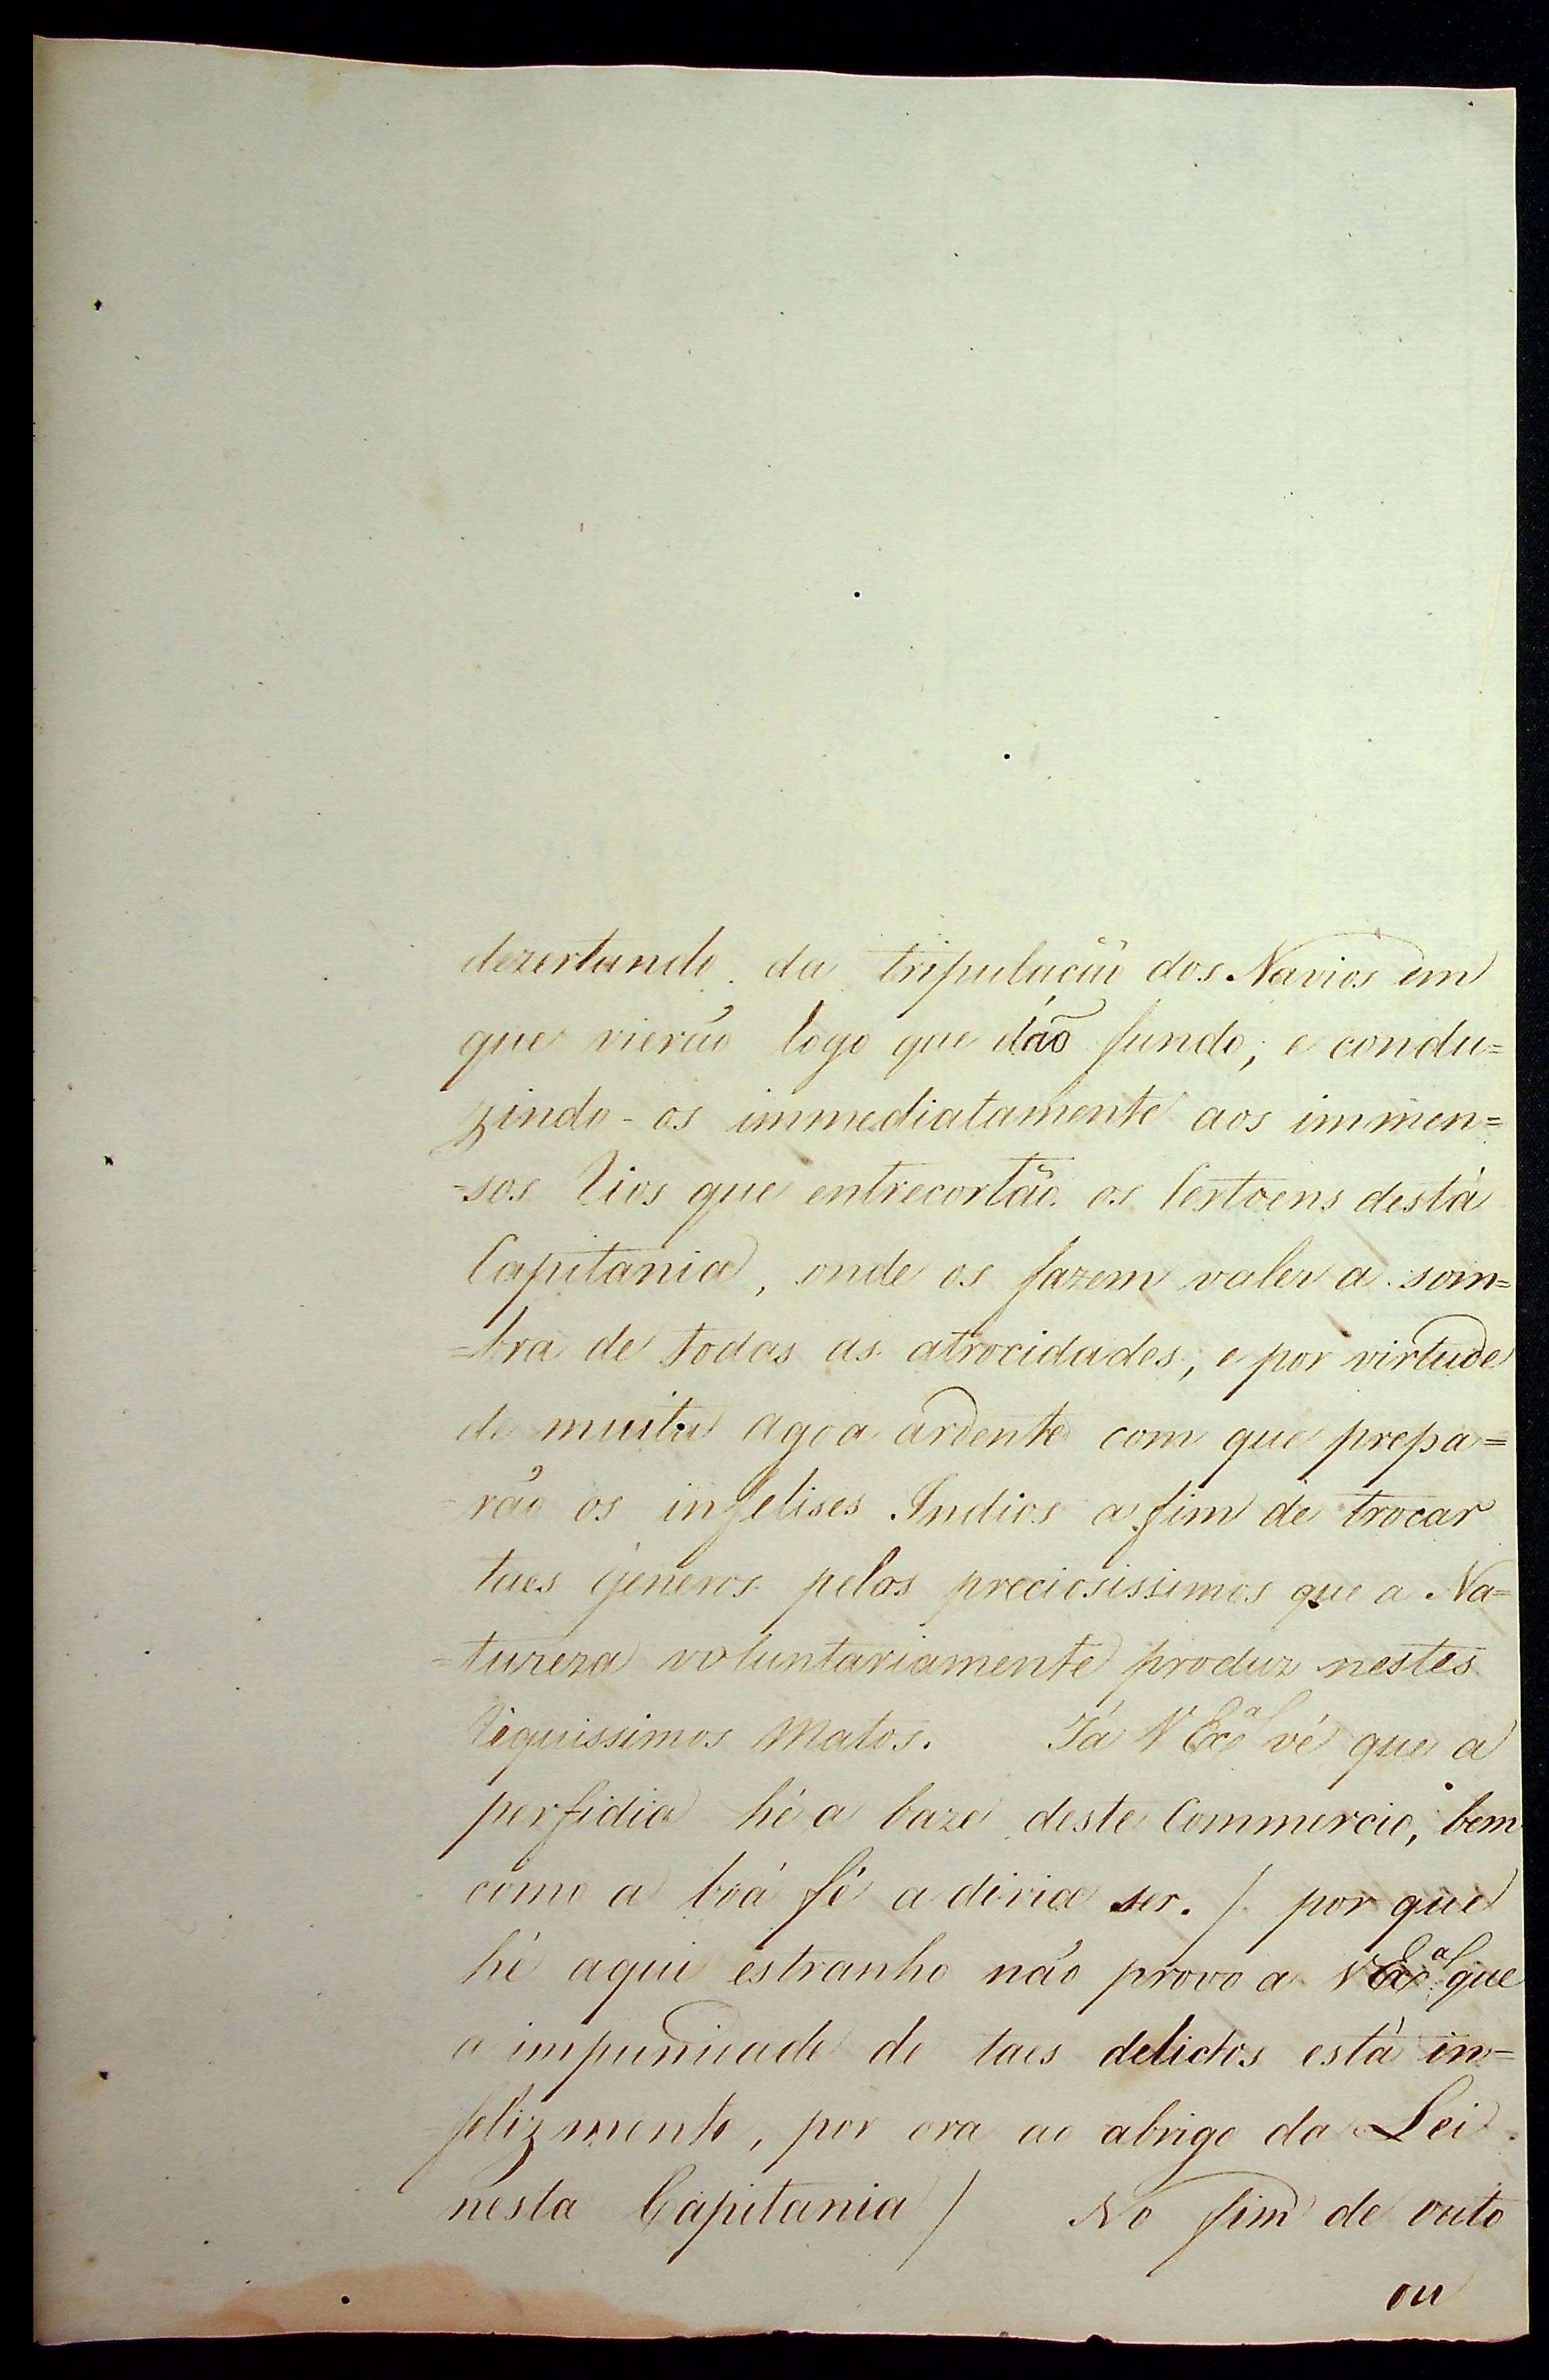 dezertando da tripulação dos Navios em
que vierão logo que dão fundo; e condu=
zindo-os immediatamente aos immen=
=sos Rios que entrecortão os Certoens desta
Capitania, onde os fazem valer a som=
=bra de todas as atrocidades, e por virtude
de muita agoa ardente com que prepa=
=rão os infelises Indios a fim de trocar
taes generos pelos preciosissimos que a Na=
=tureza voluntariamente produz nestes
Riquissimos Matos. Já V Exª vê que a
perfidia hé a baze deste Commercio, bem
como a boá fé a divia ser. / por que
hé aqui estranho não provo a V Exª que
a impunidade de taes delictos está in=
felizmente, por ora ao abrigo da Lei
nesta Capitania / No fim de outo
ou